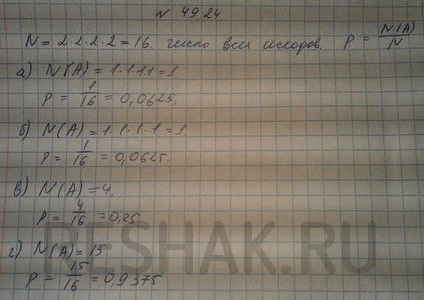 № 49 24
N = 2·2·2·2 = 16. число всех исходов, P = N(A)/N
а) N(A) = 1·1·1·1 = 1
P = 1/16 = 0,0625.
б) N(A) = 1·1·1·1 = 1
P = 1/16 = 0,0625.
в) N(A) = 4.
P = 4/16 = 0,25
г) N(A) = 15
P = 15/16 = 0,9375
RESHAK.RU